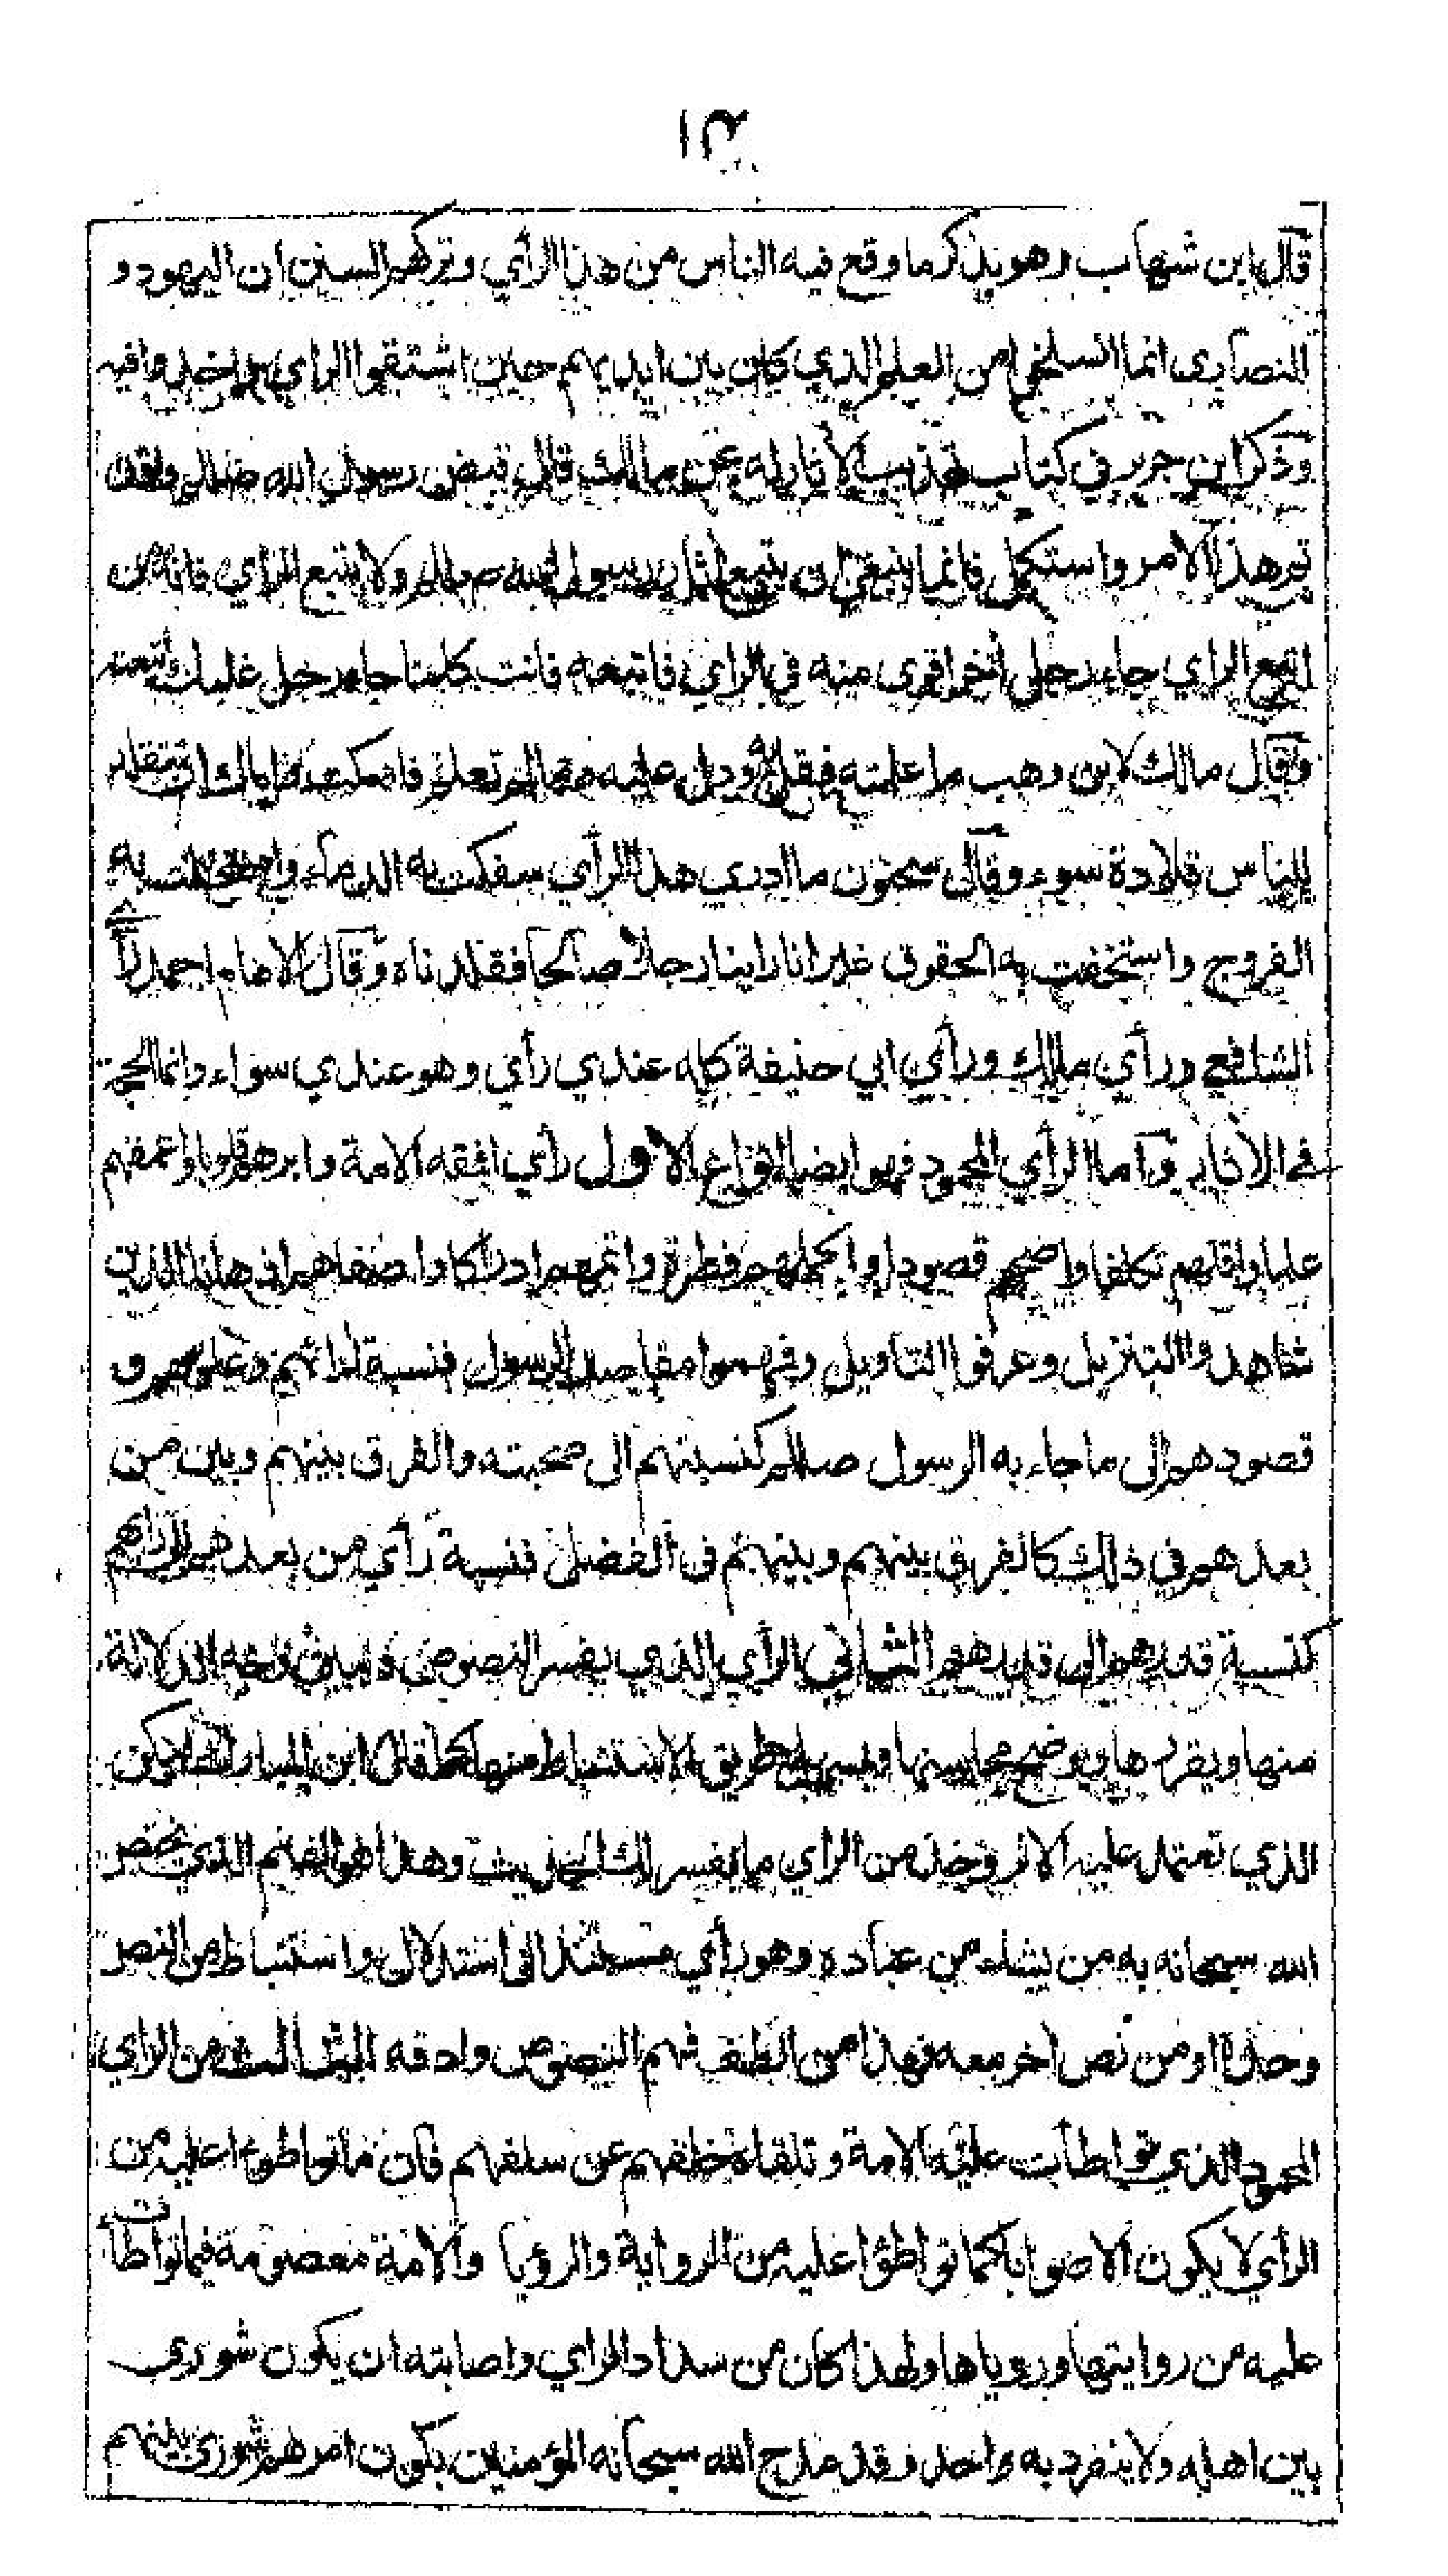 قال ابن شهاب وهو يذكر ما وقع فيه الناس من هذا الرأي وتركهم السنن ان اليهود و
النصارى انما انسلخوا من العلم الذي كان بين ايديهم حين اشتقوا الراي واخذوا فيه
وذكر ابن جرير في كتاب تهذيب الآثار له عن مالك قال قبض رسول الله صللم وقد
تم هذا الامر واستكمل فانما ينبغي ان تتبع آثار رسول الله صللم ولا يتبع الراي فانه من
اتبع الراي جاء رجل آخر اقوى منه في الراي فاتبعه فانت كلما جاء رجل غلبك واتبعته
وقال مالك لابن وهب ما علمته فقل به ودل عليه وما لم تعلم فاسكت واياك ان تتقلد
للناس قلادة سوء وقال سحنون ما ادري هذا الرأي سفكت به الدماء واستحلت به
الفروج واستخفت به الحقوق غير انا راينا رجلا صالحا فقلدناه وقال الامام احمد رأي
الشافعي ورأي مالك ورأي ابي حنيفة كله عندي رأي وهو عندي سواء وانما الحجة
في الآثار واما الرأي المحمود فهو ايضا انواع الاول رأي افقه الامة وابرهم قلوبا واعمقهم
علما واقلهم تكلفا واصحهم قصودا واكملهم فطرة واتمهم ادراكا واصفاهم اذهانا الذين
شاهدوا التنزيل وعرفوا التاويل وفهموا مقاصد الرسول فنسبة آرائهم وعلومهم و
قصودهم الى ما جاء به الرسول صللم كنسبتهم الى صحبته والفرق بينهم وبين من
بعدهم في ذلك كالفرق بينهم وبينهم في الفضل فنسبة رأي من بعدهم الى رايهم
كنسبة قدرهم الى قدرهم الثاني الرأي الذي يفسر النصوص ويبين وجه الدلالة
منها ويقررها ويوضح محاسنها ويسهل طريق الاستنباط منها كما قال ابن المبارك ليكن
الذي تعتمد عليه الاثر وخذ من الراي ما يفسر لك الحديث وهذا هو الفهم الذي يختص
الله سبحانه به من يشاء من عباده وهو رأي مستند الى استدلال واستنباط من النص
وحده او من نص آخر معه فهذا من الطف فهم النصوص وادقه الثالث من الراي
المحمود الذي تواطأت عليه الامة وتلقاه خلفهم عن سلفهم فان ما تواطؤا عليه من
الرأي لا يكون الا صوابا كما تواطؤا عليه من الرواية والرؤيا والامة معصومة فيما تواطأت
عليه من روايتها ورؤياها ولهذا كان من سداد الراي واصابته ان يكون شورى
بين اهله ولا ينفرد به واحد وقد مدح الله سبحانه المؤمنين بكون امرهم شورى بينهم